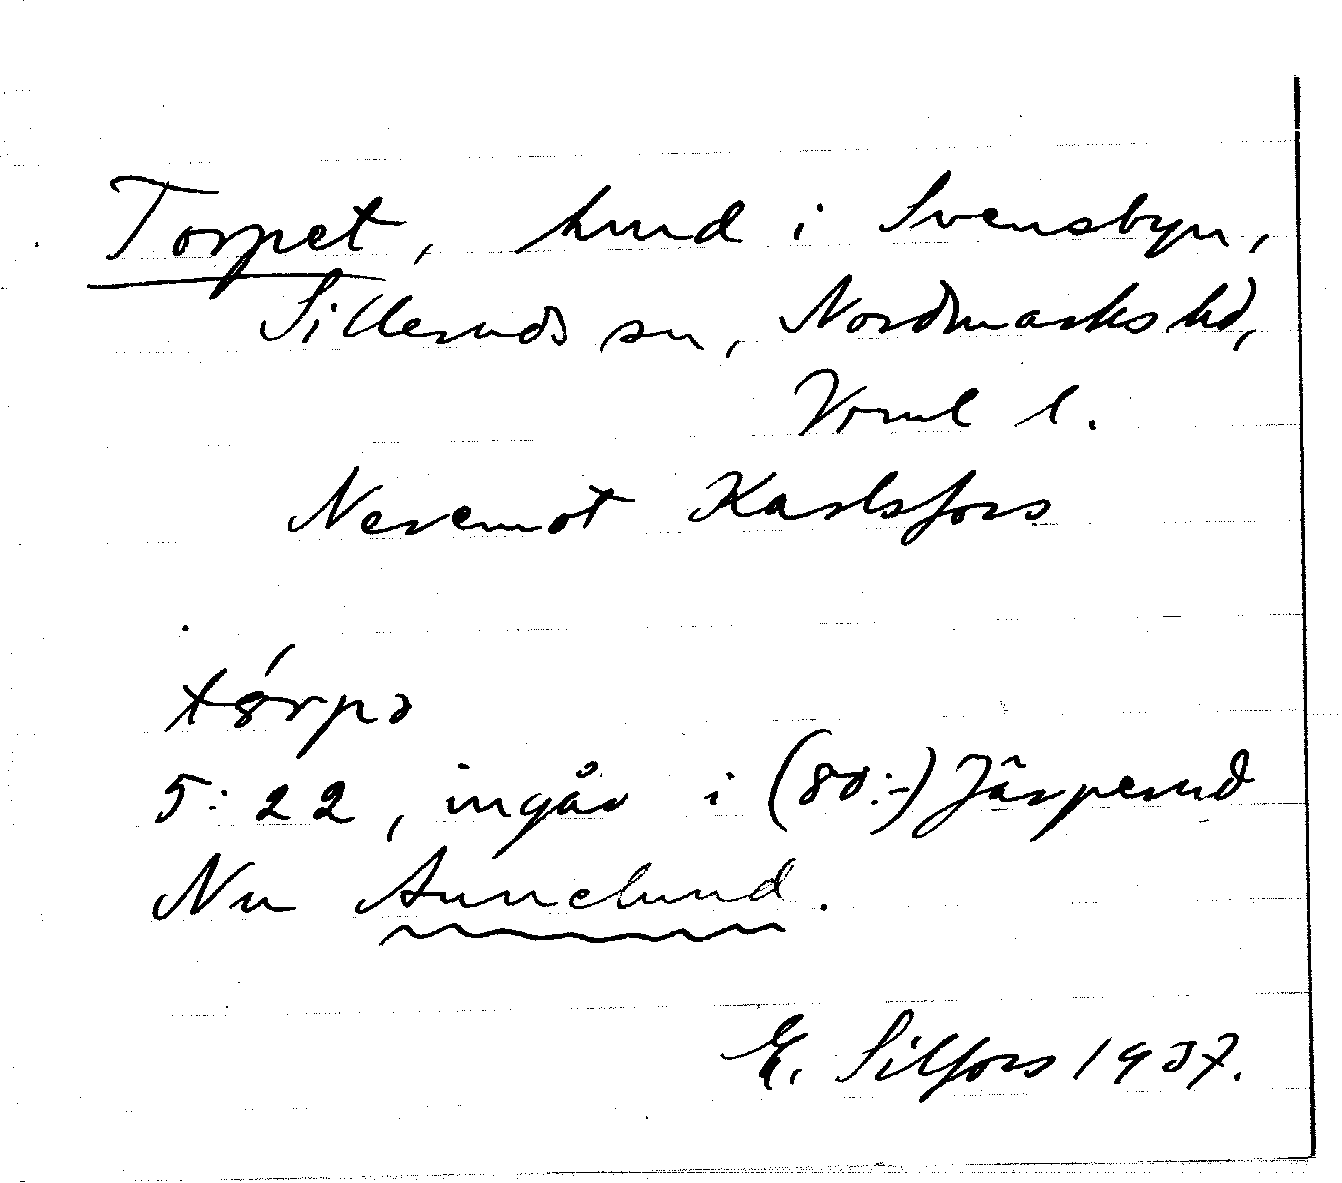 Torpet, hmd i Svensbyn,
Silleruds sn, Nordmarks hd,
Vrml l.
Neremot Karlsfors
tǿrpə
5:22, ingår i (80:-) Järperud
Nu Annelund.
E. Silfors 1937.